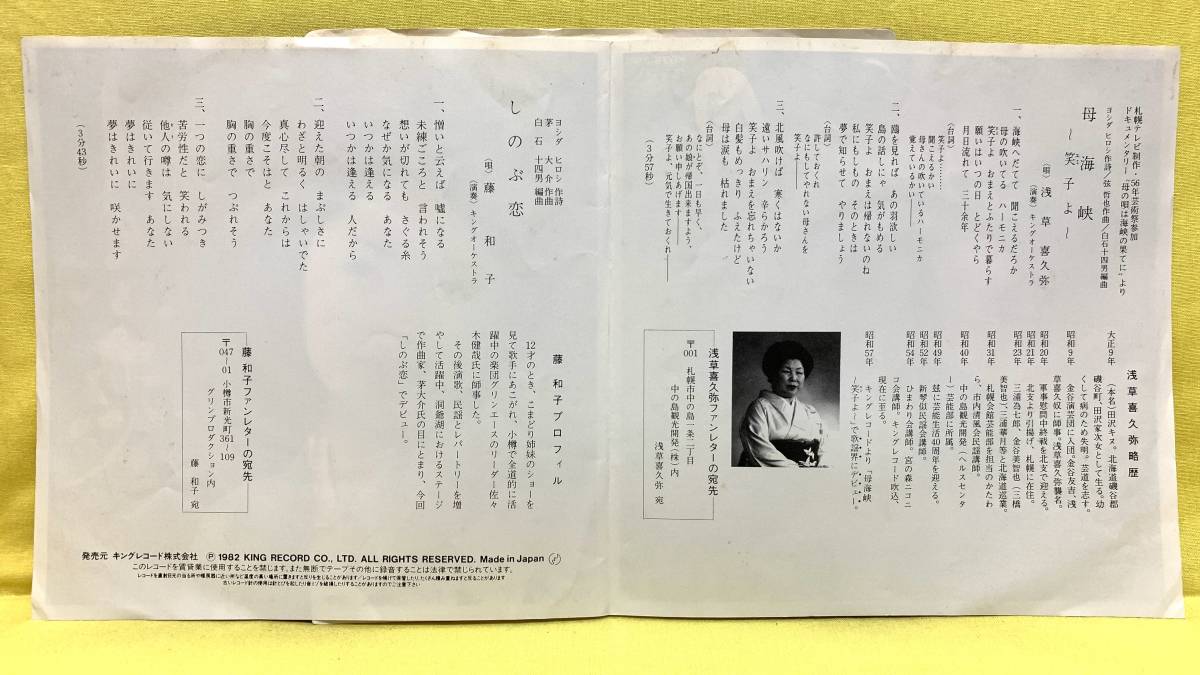 札幌テレビ制作・56年芸術祭参加
ドキュメンタリー“母の唄は海峡の果てに”より
母 海峡
〜笑子よ〜
ヨシダ ヒロシ作詩／弦 哲也作曲／白石十四男編曲
(唄) 浅草 喜久弥
(演奏) キングオーケストラ
一、海峡へだてて 聞こえるだろか
母の吹いてる ハーモニカ
笑子よ おまえとふたりで暮らす
願いはいつの日 とどくやら
月日流れて 三十余年
(台詞)
笑子よ………
聞こえるかい
母さんの吹いているハーモニカ
覚えているかい――
二、鷗を見れば あの羽欲しい
島の話しに 気がもめる
笑子よ おまえは帰れないのね
私にもしもの そのときは
夢で知らせて やりましょう
(台詞)
許しておくれ
なにもしてやれない母さんを
笑子よ――
三、北風吹けば 寒くはないか
遠いサハリン 辛らかろう
笑子よ おまえを忘れちゃいない
白髪もめっきり ふえたけど
母は涙も 枯れました
(台詞)
なにとぞ、一日も早く、
あの娘が帰国出来ますよう、
お願い申しあげます――
笑子よ、元気で生きておくれ――
(3分57秒)
浅草喜久弥略歴
大正9年 (本名)田沢キヌ。北海道磯谷郡
磯谷町、田沢家次女として生る。幼
くして病のため失明。芸道を志す。
昭和9年 金谷演芸団に入団。金谷友吉、浅
草喜久奴に師事。浅草喜久弥襲名。
昭和20年 軍事慰問中終戦を北支で迎える。
昭和21年 北支より引揚げ、札幌に在住。
昭和23年 三浦為七郎、金谷美智也(三橋
美智也)、三浦華月等と北海道巡業。
昭和31年 札幌会館芸能部を担当のかたわ
ら、市内清風会民謡講師。
昭和40年 中の島観光開発(ヘルスセンタ
ー)芸能部に所属。
昭和49年 玆に芸能生活40周年を迎える。
昭和52年 新琴似民謡会講師。
昭和54年 ひまわり会講師。宮の森ニコニ
コ会講師。キングレコード吹込、
現在に至る。
昭和57年 キングレコードより「母海峡
〜笑子よ〜」で歌謡界にデビュー。
浅草喜久弥ファンレターの宛先
〒001 札幌市中の島一条二丁目
中の島観光開発(株)内
浅草喜久弥 宛
しのぶ恋
ヨシダ ヒロシ作詩
茅 大介作曲
白石 十四男 編曲
(唄) 藤 和子
(演奏) キングオーケストラ
一、憎いと云えば 嘘になる
未練ごころと 言われそう
想いが切れても さぐる糸
なぜか気になる あなた
いつかは逢える
いつかは逢える 人だから
二、迎えた朝の まぶしさに
わざと明るく はしゃいでた
真心尽して これからは
今度こそはと あなた
胸の重さで
胸の重さで つぶれそう
三、一つの恋に しがみつき
苦労性だと 笑われる
他人の噂は 気にしない
従いて行きます あなた
夢はきれいに
夢はきれいに 咲かせます
(3分43秒)
藤 和子プロフィル
12才のとき、こまどり姉妹のショーを
見て歌手にあこがれ、小樽で全道的に活
躍中の楽団グリンエースのリーダー佐々
木健哉氏に師事した。
その後演歌、民謡とレパートリーを増
やして活躍中、洞爺湖におけるステージ
で作曲家、茅大介氏の目にとまり、今回
「しのぶ恋」でデビュー。
藤 和子ファンレターの宛先
〒047-01 小樽市新光町361-109
グリンプロダクション内
藤 和子 宛
発売元 キングレコード株式会社 Ⓟ 1982 KING RECORD CO., LTD. ALL RIGHTS RESERVED. Made in Japan
このレコードを賃貸業に使用することを禁じます。また無断でテープその他に録音することは法律で禁じられています。
レコードを直射日光の当る所や暖房器に近い所など温度の高い場所に置きますと反りを生じることがあります／レコードを傾けて保管したり、たくさん積み重ねますと反ることがあります
古いレコード針の使用は針とびを起したり音ミゾを破損したりすることがありますのでご注意下さい